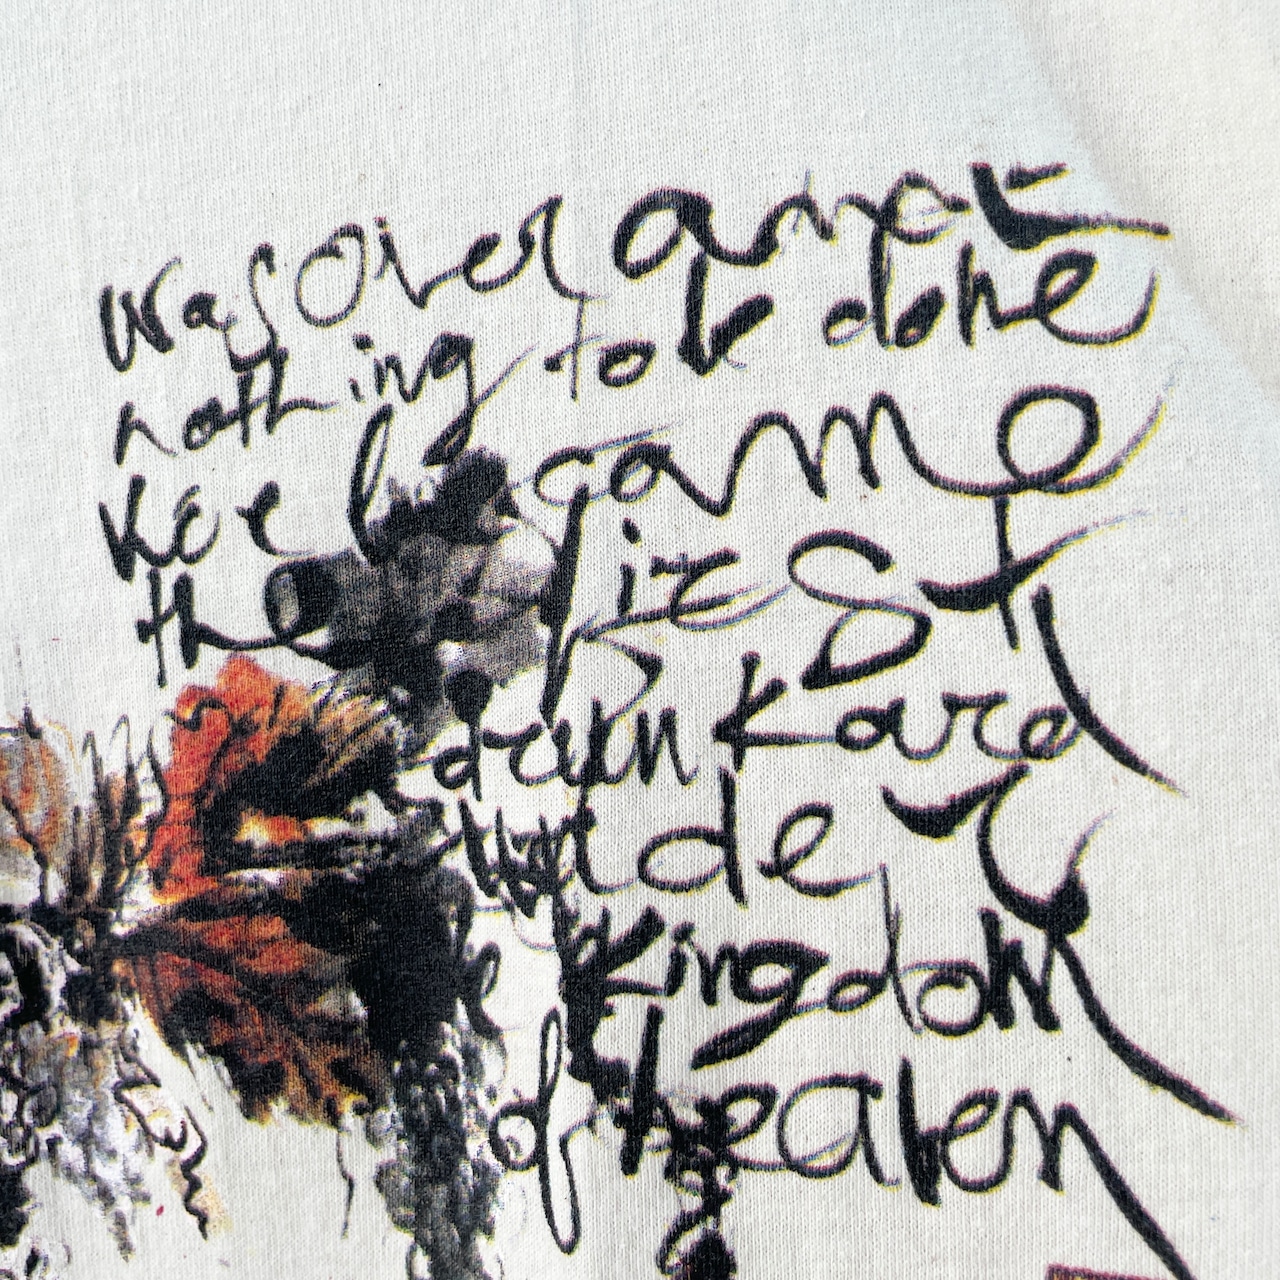 was over and
nothing to be done
Kee became
the first
drunkard
unde
kingdom
of heaven